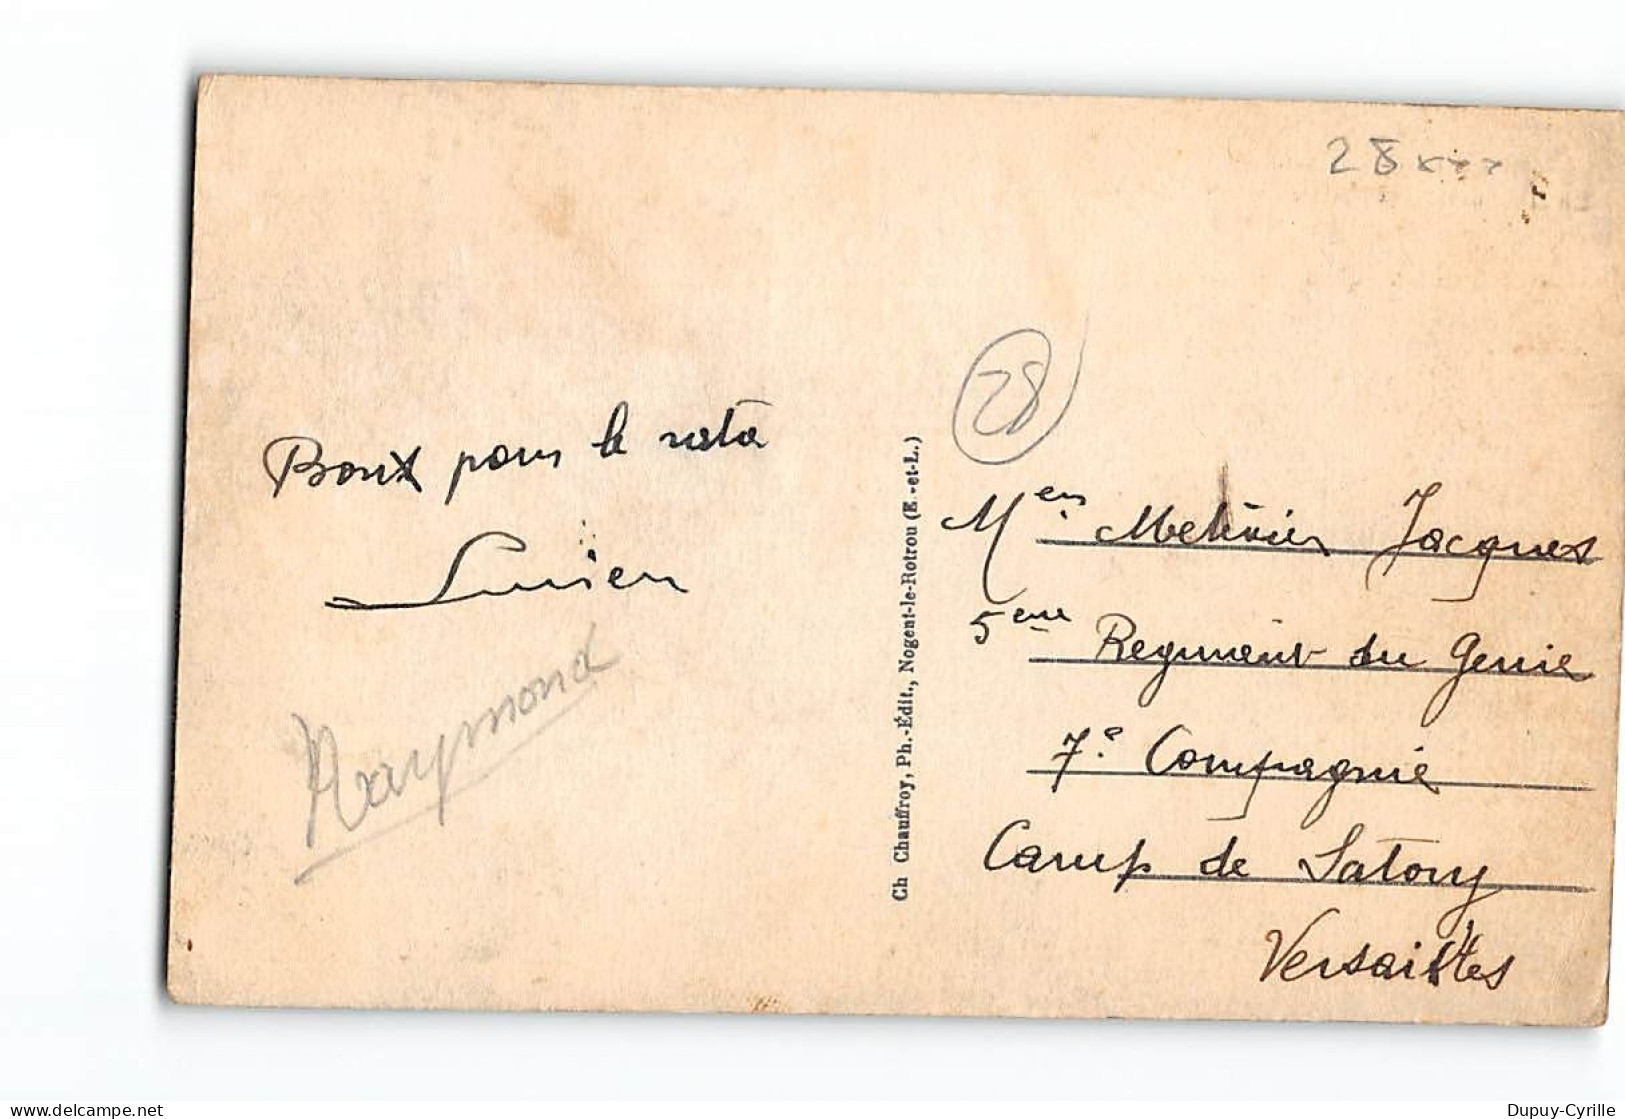 28 xxx
28
Bont pour le rata
Lucien
Raymond
Ch Chauffroy, Ph.-Édit., Nogent-le-Rotrou (E.-et-L.)
Jacques
5eme Regiment du Genie
7e Compagnie
Camp de Satory
Versailles
Dupuy-Cyrille